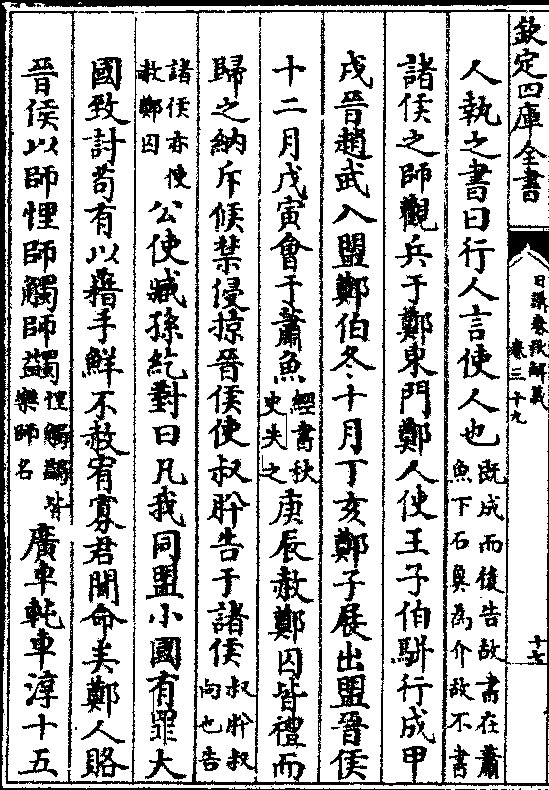 欽定四庫全書
日講春秋解義
卷三十九
十七
人執之書曰行人言使人也既成而後告故書在蕭魚下石㚟為介故不書
諸侯之師觀兵于鄭東門鄭人使王子伯駢行成甲
戌晉趙武入盟鄭伯冬十月丁亥鄭子展出盟晉侯
十二月戊寅會于蕭魚經書秋史失之庚辰赦鄭囚皆禮而
歸之納斥候禁侵掠晉侯使叔肸告于諸侯叔肸叔向也告
諸侯亦使赦鄭囚公使臧孫紇對曰凡我同盟小國有罪大
國致討苟有以藉手鮮不赦宥寡君聞命矣鄭人賂
晉侯以師悝師觸師蠲悝觸蠲皆樂師名廣車軘車淳十五